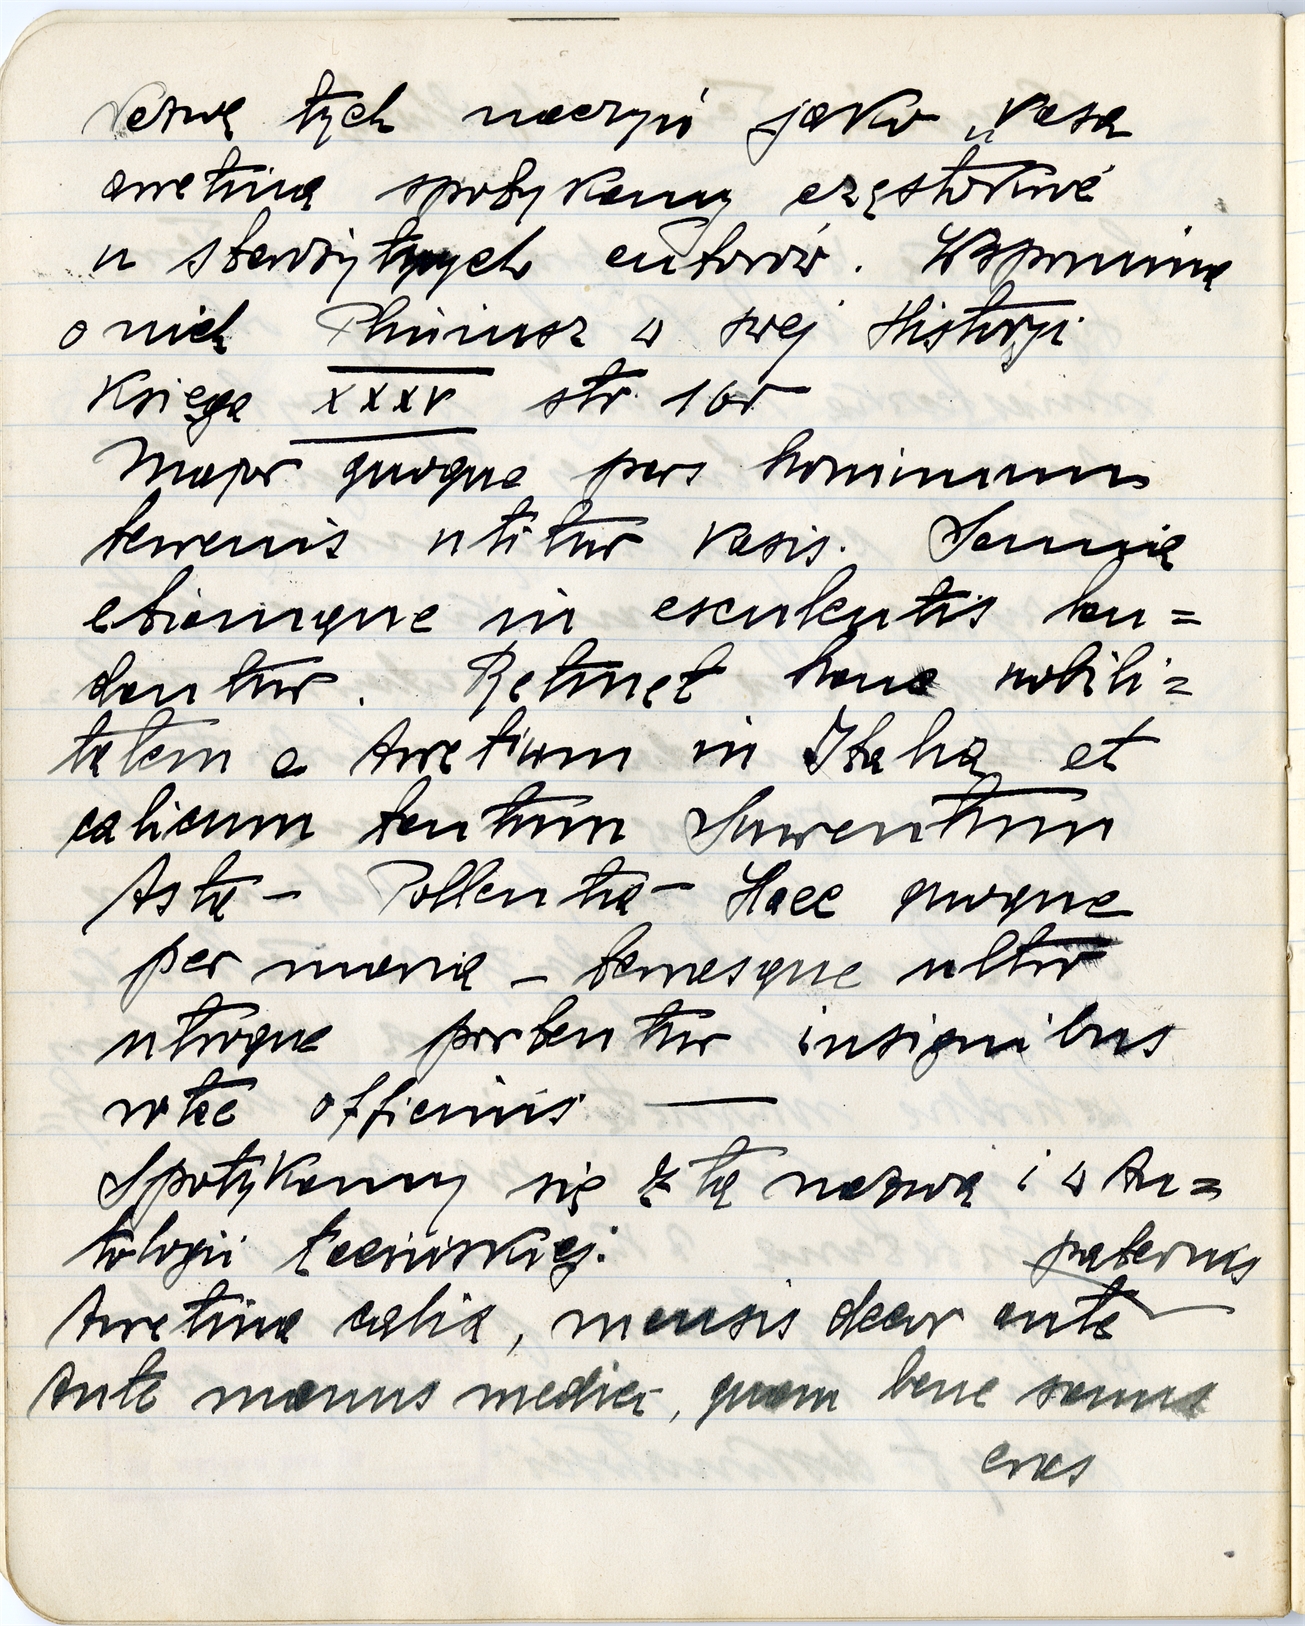 Nazwę tych naczyń jako „vasa
arretina spotykamy częstokroć
u starożytnych autorów. Wspomina
o nich Pliniusz w swej Historji
Księga XXXV str. 160
Major quoque pars hominum
terrenis utitur vasis. Samia
etiamque in esculentis lau=
dantur. Retinet hanc nobili=
tatem e Arretium in Italia et
calicum tantum Surrentum
Asta – Pollentia – Haec quoque
per maria – terrasque ultro
utroque portentur insignibus
rotae officinis —
Spotykamy się z tą nazwą i w An=
tologii łacińskiej:
Arretine calix, mensis decor ante paternis
Ante manus medici, quam bene sanus
eras